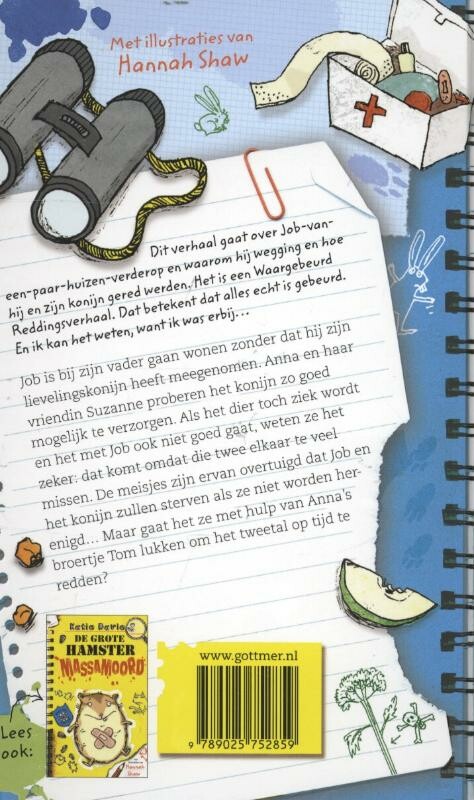 Met illustraties van
Hannah Shaw
Dit verhaal gaat over Job-van-
een-paar-huizen-verderop en waarom hij wegging en hoe
hij en zijn konijn gered werden. Het is een Waargebeurd
Reddingsverhaal. Dat betekent dat alles echt is gebeurd.
En ik kan het weten, want ik was erbij...
Job is bij zijn vader gaan wonen zonder dat hij zijn
lievelingskonijn heeft meegenomen. Anna en haar
vriendin Suzanne proberen het konijn zo goed
mogelijk te verzorgen. Als het dier toch ziek wordt
en het met Job ook niet goed gaat, weten ze het
zeker: dat komt omdat die twee elkaar te veel
missen. De meisjes zijn ervan overtuigd dat Job en
het konijn zullen sterven als ze niet worden her-
enigd... Maar gaat het ze met hulp van Anna's
broertje Tom lukken om het tweetal op tijd te
redden?
Lees
ook:
Katie Davies
DE GROTE
HAMSTER
MASSAMOORD
Hannah
Shaw
www.gottmer.nl
9 789025 752859